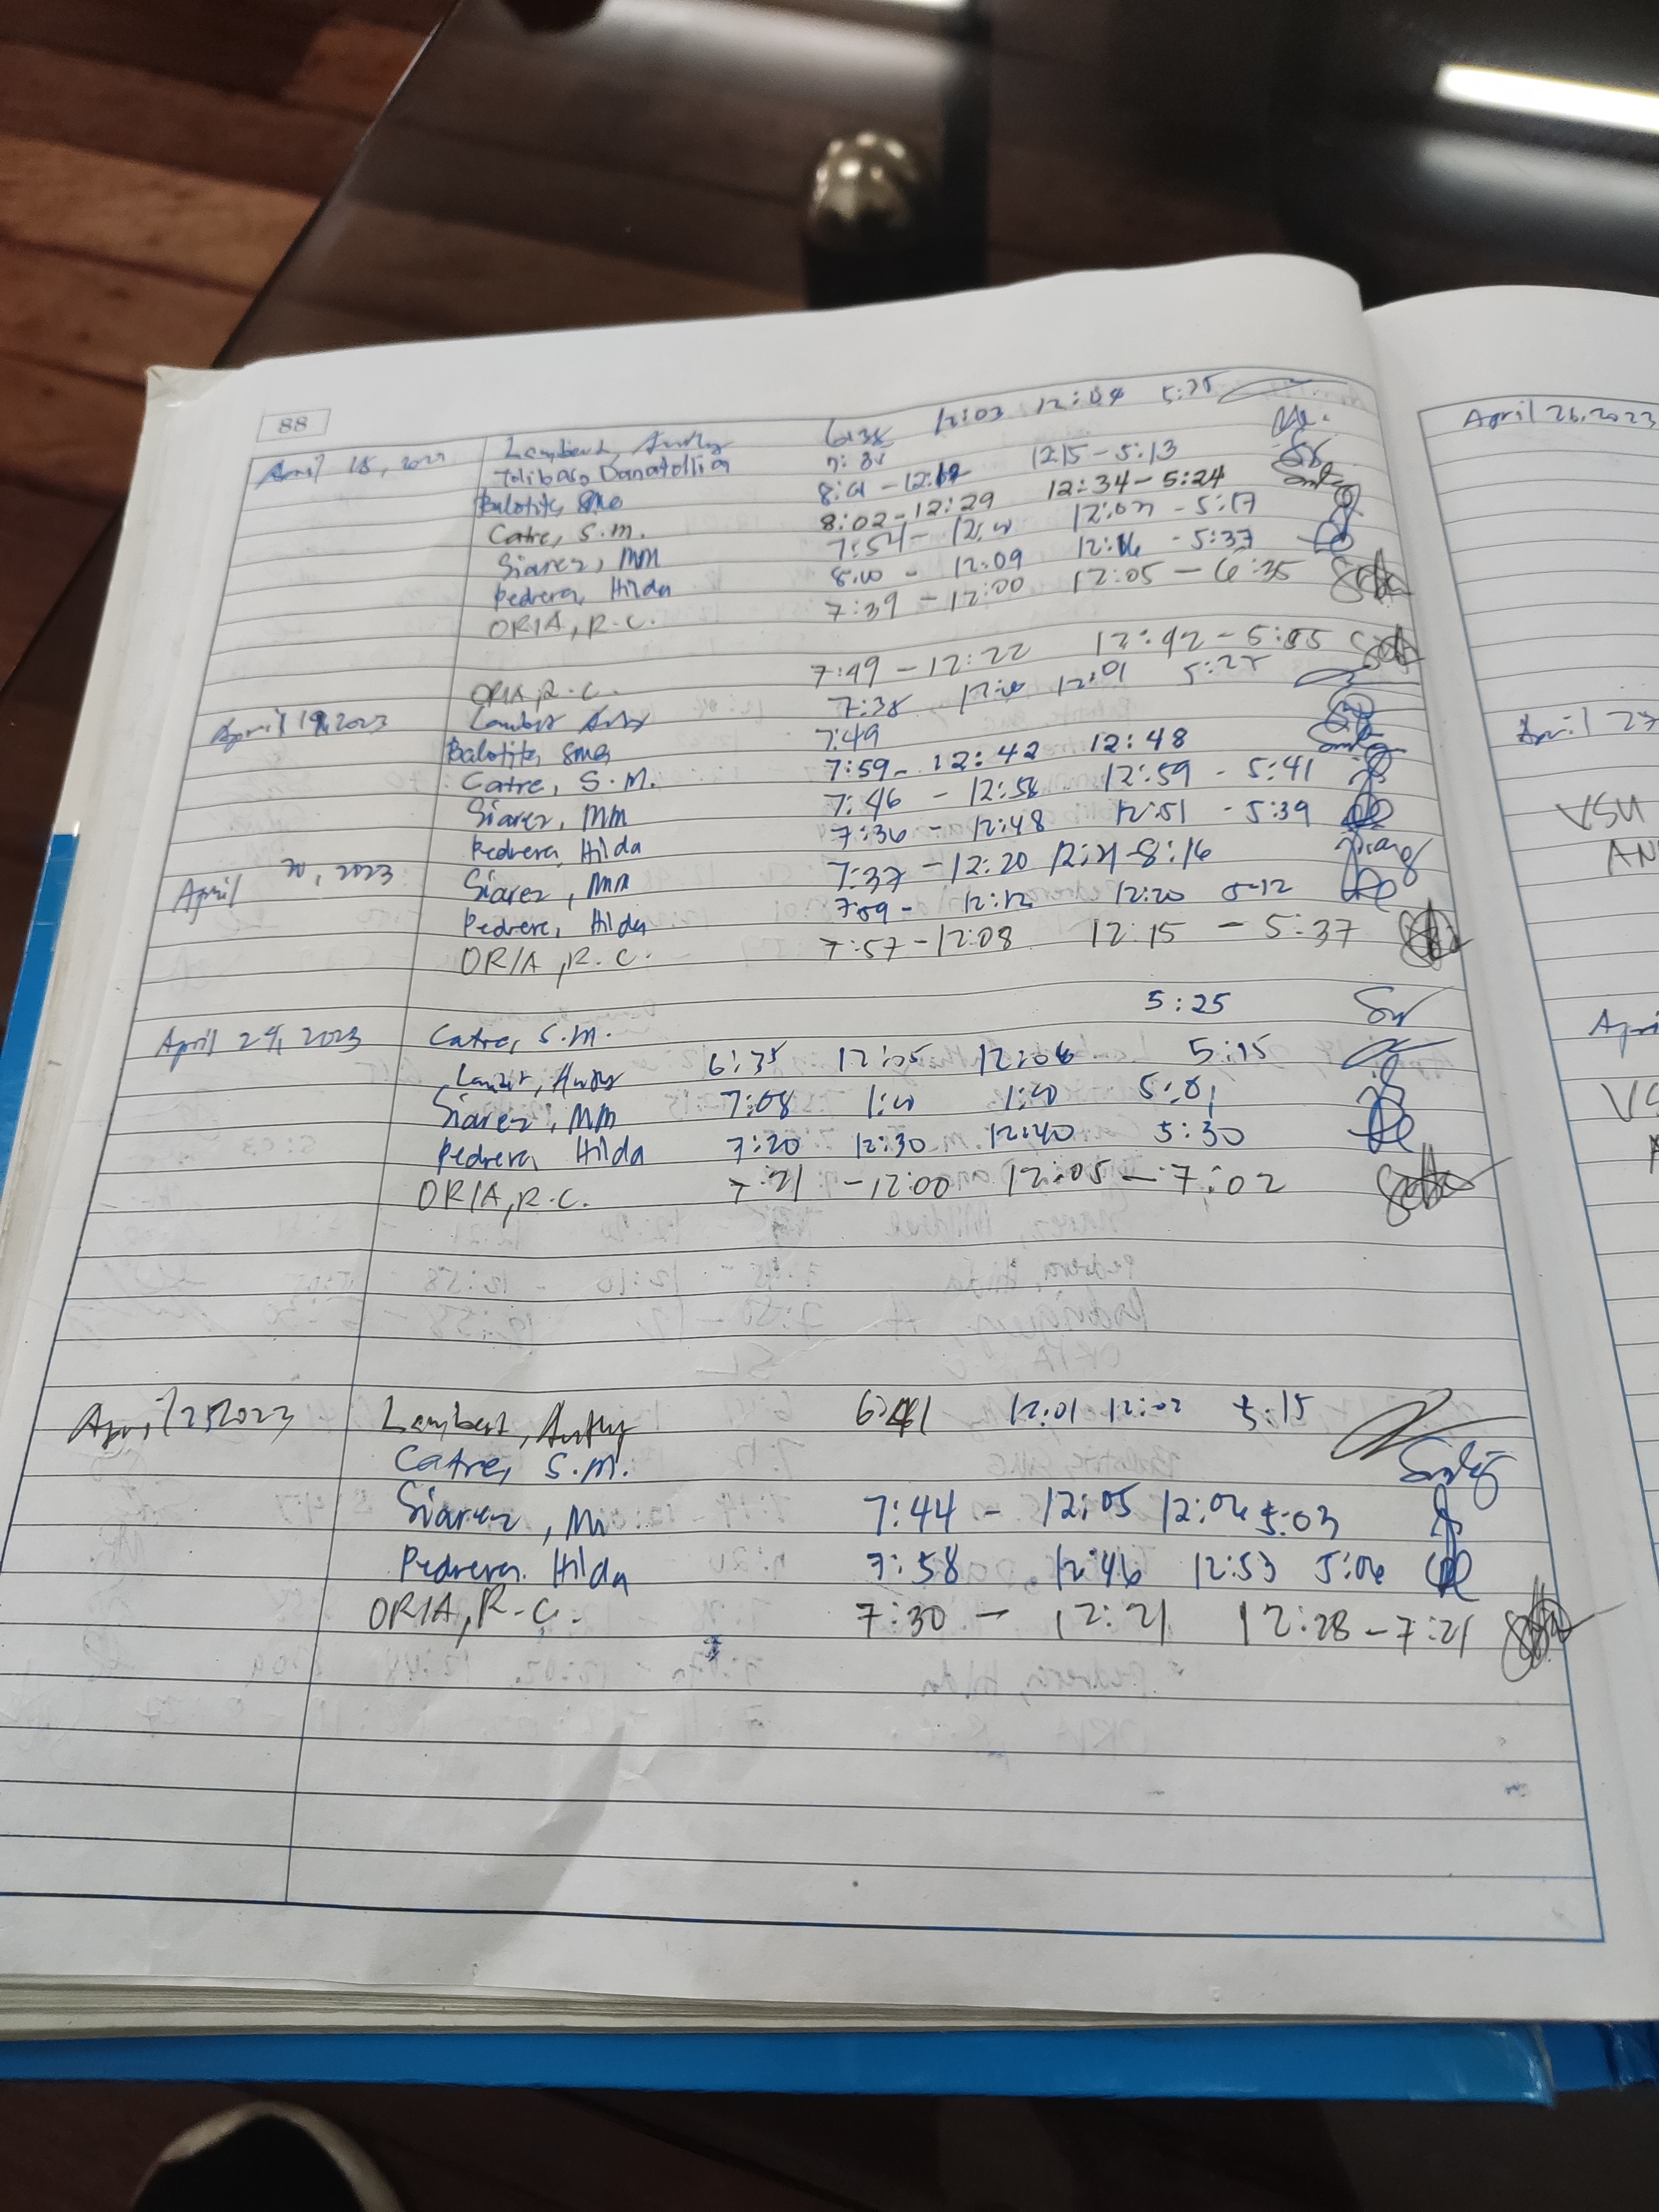 88
April 18, 2023 Lambert, 6:38 12:03 12:04 5:35
Tolibas, Danatollia
Balotite, SMG 8:01 - 12:12 12:15 - 5:13
Catre, S.M. 8:02 - 12:29 12:34 - 5:24
Siarez, MM 7:54 - - 5:17
Pedrera, Hilda 8:00 - 12:09 12:16 - 5:37
ORIA, R.C. 7:39 - 12:00 12:05 - 6:35
ORIA, R.C. 7:49 - 12:22 12:42 - 5:55
April 19, 2023 Lambert 7:38 12:01
Balotite, SMG 7:49
Catre, S.M. 7:59 - 12:42 12:48
Siarez, MM 7:46 - 12:58 12:59 - 5:41
Pedrera, Hilda 7:36 - 12:48 12:51 - 5:39
April 20, 2023 Siarez, MM 7:37 - 12:20 12:21 - 8:16
Pedrera, Hilda 7:59 - 12:12 12:20 5:12
ORIA, R.C. 7:57 - 12:08 12:15 - 5:37
April 24, 2023 Catre, S.M. 5:25
6:35 12:05 12:06 5:15
Siarez, MM 7:08 1:00 1:00 5:01
Pedrera, Hilda 7:20 12:30 12:40 5:30
ORIA, R.C. 7:21 - 12:00 12:05 - 7:02
April 25, 2023 Lambert, 6:41 12:01 12:02 5:15
Catre, S.M.
Siarez, 7:44 - 12:05 12:06 5:03
Pedrera, Hilda 7:58 12:46 12:53 5:06
ORIA, R.C. 7:30 - 12:21 12:28 - 7:21
April 26, 2023
April 27
VSU
AN
Apri
VS